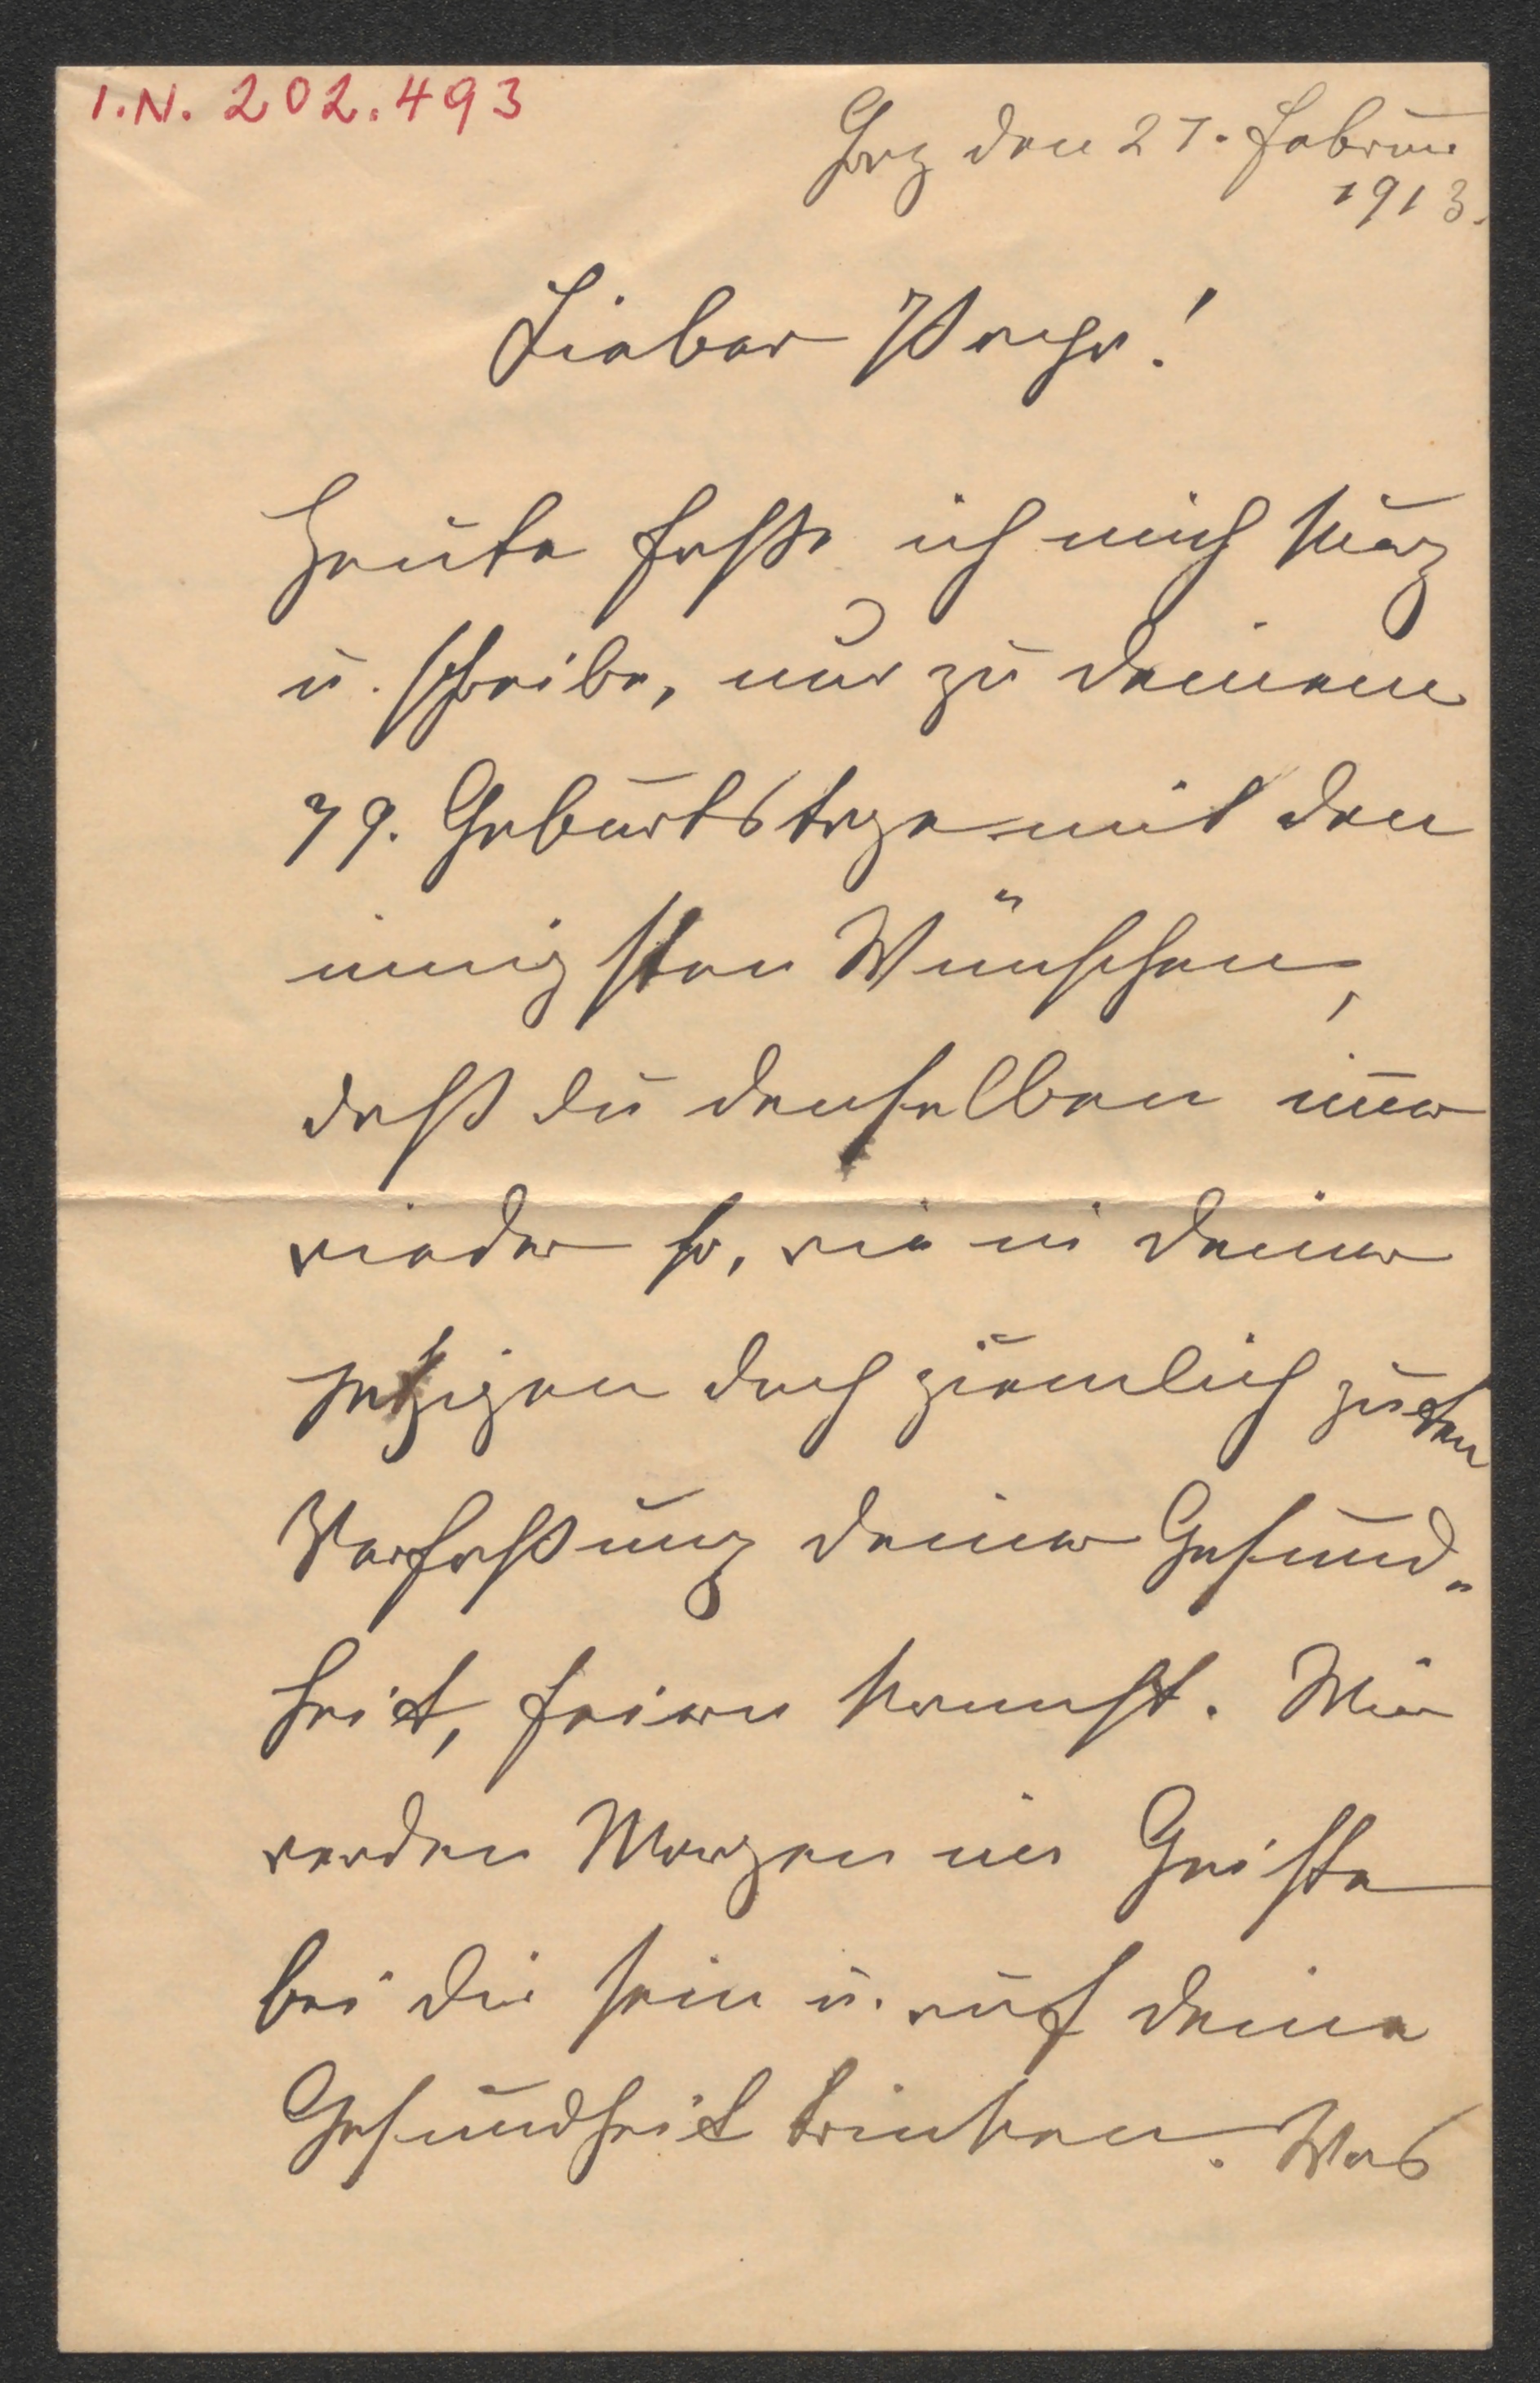 I.N. 202.493
Graz den 27. Februar
1913.
Lieber Papa!
Heute fasse ich mich kurz
u. schreibe, nur zu deinem
79. Geburtstage mit den
innigsten Wünschen,
daß du denselben immer
wieder so, wie in deiner
jetzigen doch ziemlich guten
Verfassung deiner Gesund-
heit, feiern kannst. Wir
werden Morgen im Geiste
bei dir sein u. auf deine
Gesundheit trinken. Was